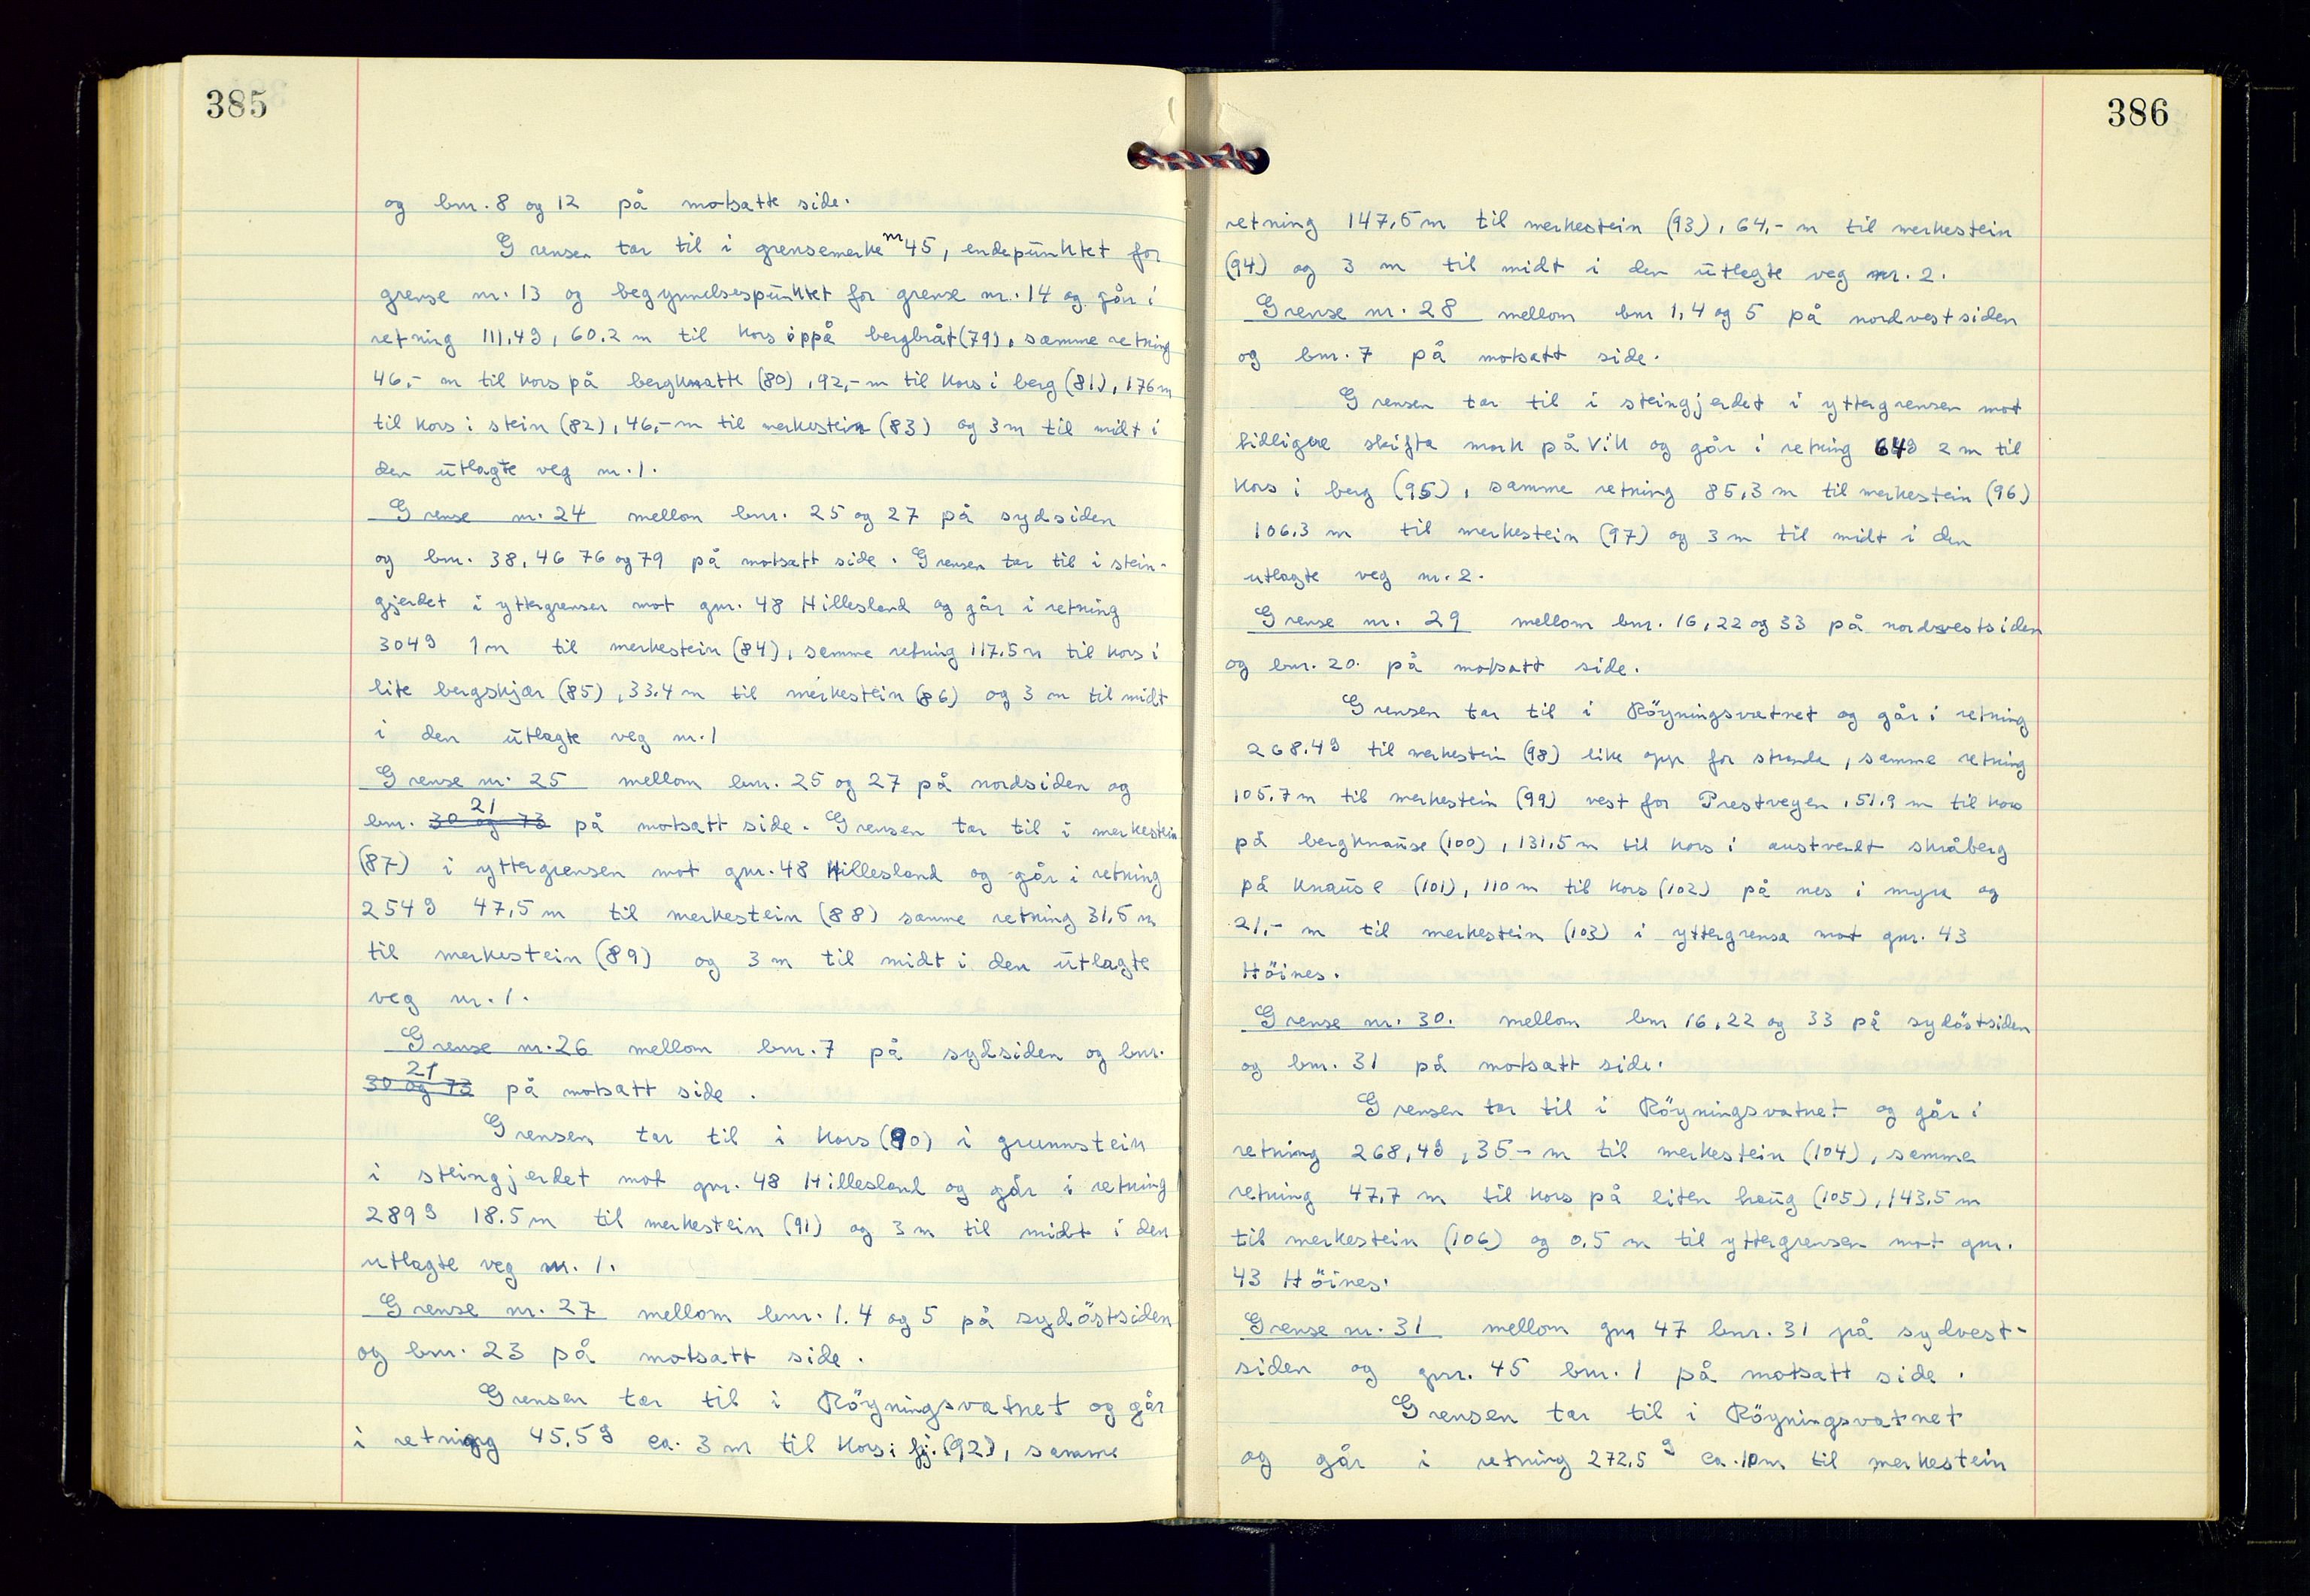 385
og bnr. 8 og 12 på motsatte side.
Grensen tar til i grensemerke nr 45, endepunktet for
grense nr. 13 og begynnelsespunktet for grense nr. 14 og går i
retning 111,4g, 60.2 m til kors oppå bergbråt (79), samme retning
46,- m til kors på bergknatte (80), 92,- m til kors i berg (81), 176 m
til kors i stein (82), 46,- m til merkestein (83) og 3 m til midt i
den utlagte veg nr. 1.
Grense nr. 24 mellom bnr. 25 og 27 på sydsiden
og bnr. 38, 46 76 og 79 på motsatt side. Grensen tar til i stein-
gjerdet i yttergrensen mot gnr. 48 Hillesland og går i retning
304g 1 m til merkestein (84), samme retning 117.5 m til kors i
lite bergskjær (85), 33.4 m til merkestein (86) og 3 m til midt
i den utlagte veg nr. 1
Grense nr. 25 mellom bnr. 25 og 27 på nordsiden og
21
bnr. 30 og 73 på motsatt side. Grensen tar til i merkestein
(87) i yttergrensen mot gnr. 48 Hillesland og går i retning
254g 47,5 m til merkestein (88) samme retning 31,5 m
til merkestein (89) og 3 m til midt i den utlagte
veg nr. 1.
Grense nr. 26 mellom bnr. 7 på sydsiden og bnr.
21
30 og 73 på motsatt side.
Grensen tar til i kors (90) i grunnstein
i steingjerdet mot gnr. 48 Hillesland og går i retning
289g 18.5 m til merkestein (91) og 3 m til midt i den
utlagte veg nr. 1.
Grense nr. 27 mellom bnr. 1. 4 og 5 på sydöstsiden
og bnr. 23 på motsatt side.
Grensen tar til i Röyningsvatnet og går
i retning 45,5g ca. 3 m til kors i fj. (92), samme
386
retning 147,5 m til merkestein (93), 64,- m til merkestein
(94) og 3 m til midt i den utlagte veg nr. 2.
Grense nr. 28 mellom bnr 1, 4 og 5 på nordvestsiden
og bnr. 7 på motsatt side.
Grensen tar til i steingjerdet i yttergrensen mot
tidligere skifta mark på Vik og går i retning 64g 2 m til
kors i berg (95), samme retning 85,3 m til merkestein (96)
106,3 m til merkestein (97) og 3 m til midt i den
utlagte veg nr. 2.
Grense nr. 29 mellom bnr. 16, 22 og 33 på nordvestsiden
og bnr. 20. på motsatt side.
Grensen tar til i Röyningsvatnet og går i retning
268.4g til merkestein (98) like opp for stranda, samme retning
105,7 m til merkestein (99) vest for Prestvegen, 51,9 m til kors
på bergknause (100), 131,5 m til kors i austvendt skråberg
på knause (101), 110 m til kors (102) på nes i myra og
21,- m til merkestein (103) i yttergrensa mot gnr. 43
Höines.
Grense nr. 30. mellom bnr 16, 22 og 33 på sydöstsiden
og bnr. 31 på motsatt side.
Grensen tar til i Röyningsvatnet og går i
retning 268,4g, 35,- m til merkestein (104), samme
retning 47,7 m til kors på liten haug (105), 143,5 m
til merkestein (106) og 0.5 m til yttergrensen mot gnr.
43 Höines.
Grense nr. 31 mellom gnr 47 bnr. 31 på sydvest-
siden og gnr. 45 bnr. 1 på motsatt side.
Grensen tar til i Röyningsvatnet
og går i retning 272,5 g ca. 10 m til merkestein